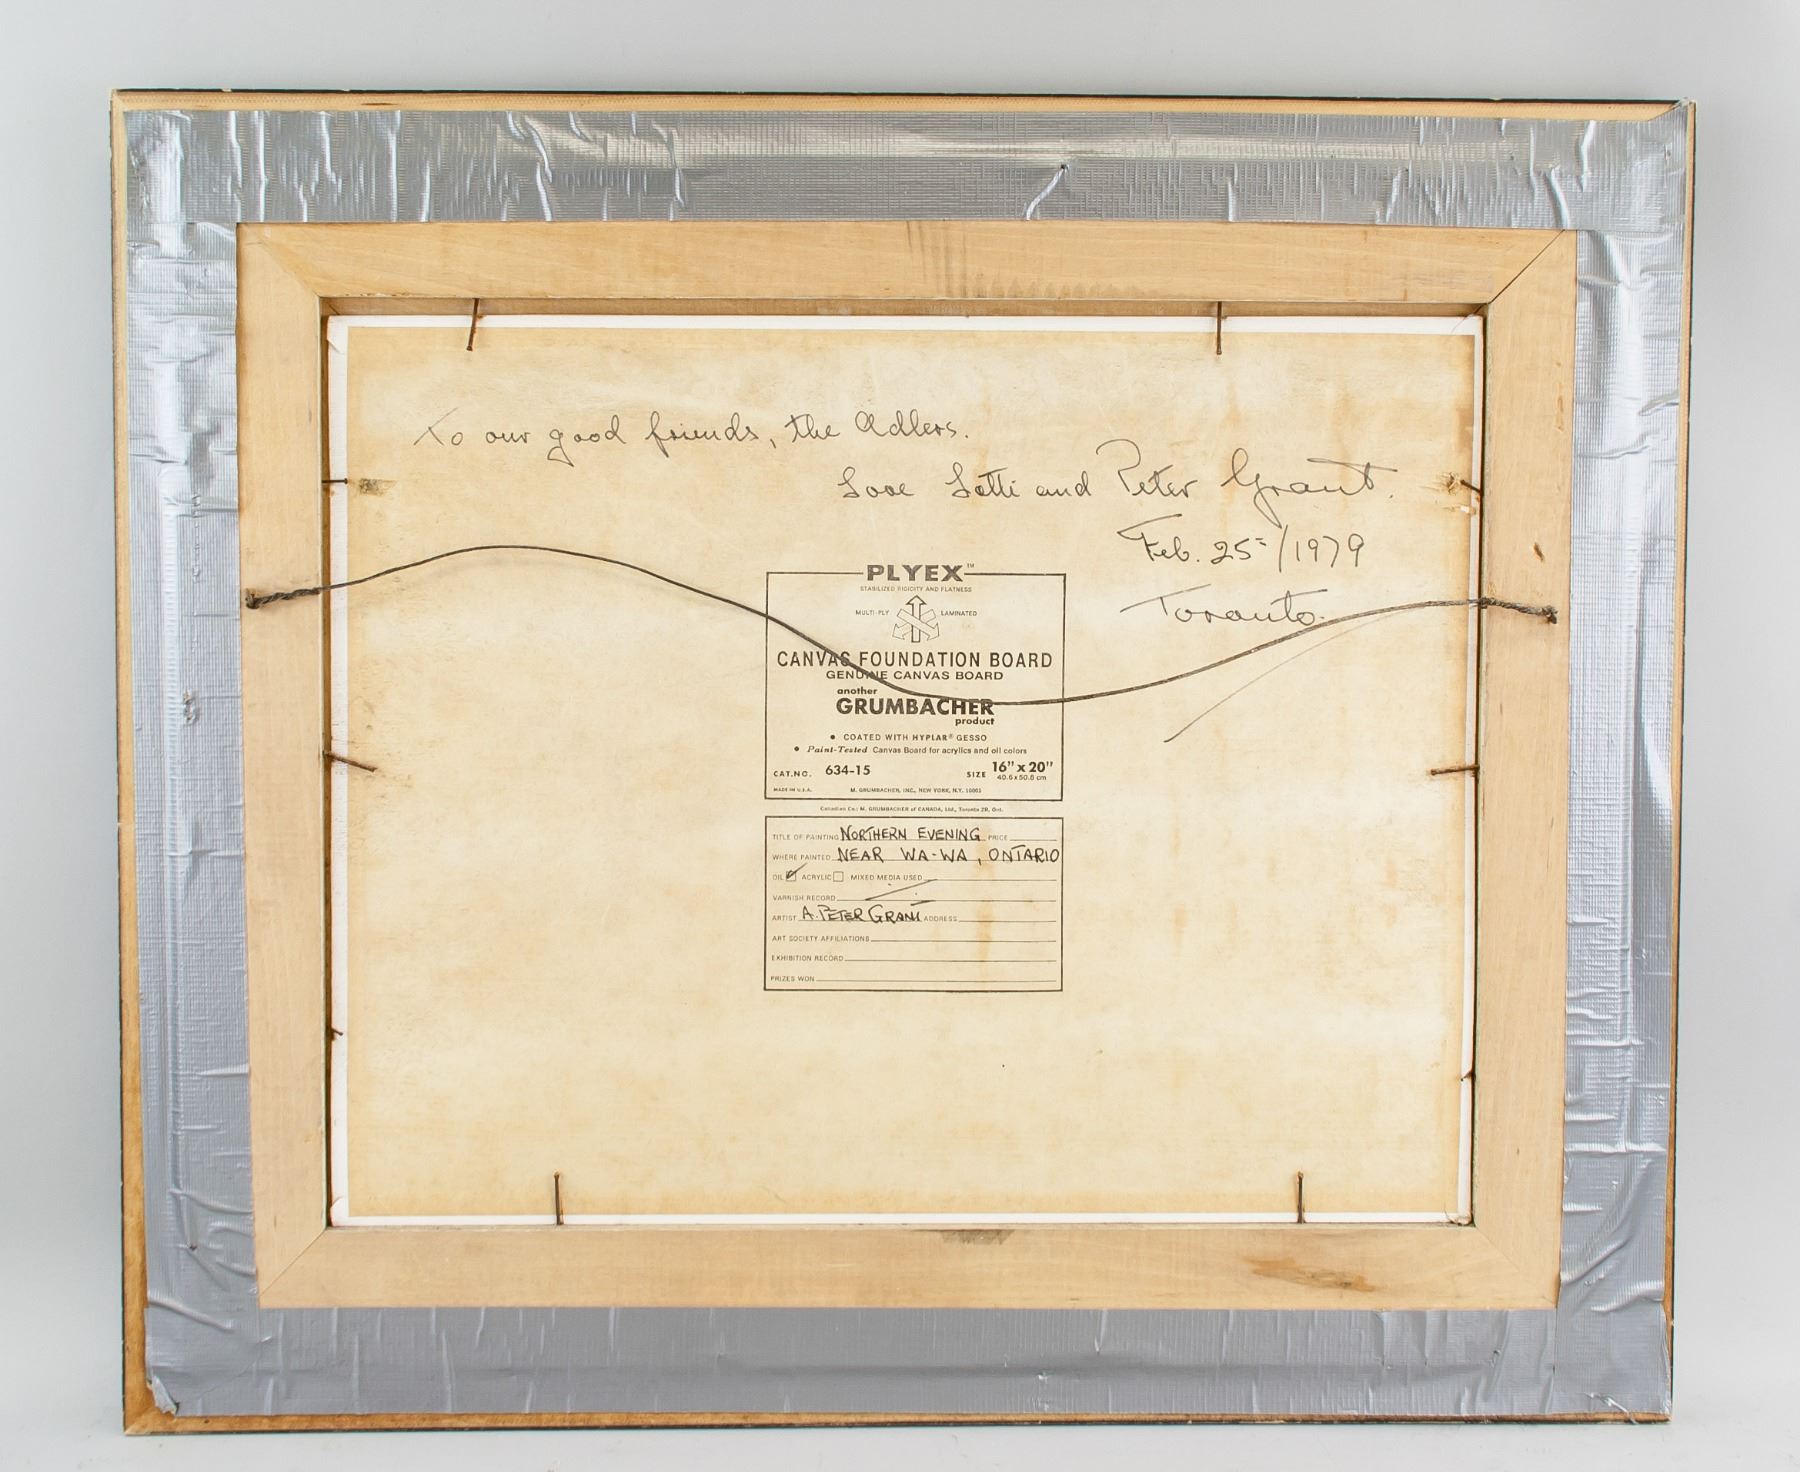 To our good friends, the Adlers.
Love Lotti and Peter Grant.
Feb. 25=/1979
Toronto.
PLYEX™
STABILIZED RIGIDITY AND FLATNESS
MULTI-PLY LAMINATED
CANVAS FOUNDATION BOARD
GENUINE CANVAS BOARD
another
GRUMBACHER
product
• COATED WITH HYPLAR® GESSO
• Paint-Tested Canvas Board for acrylics and oil colors
CAT.NO. 634-15 SIZE 16” x 20”
40.6 x 50.8 cm
MADE IN U.S.A. M. GRUMBACHER, INC., NEW YORK, N.Y. 10001
Canadian Co.: M. GRUMBACHER of CANADA, Ltd., Toronto 2B, Ont.
TITLE OF PAINTING NORTHERN EVENING PRICE
WHERE PAINTED NEAR WA-WA, ONTARIO
OIL ACRYLIC MIXED MEDIA USED
VARNISH RECORD
ARTIST A. PETER GRANT ADDRESS
ART SOCIETY AFFILIATIONS
EXHIBITION RECORD
PRIZES WON